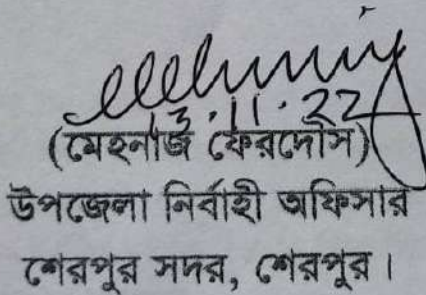 13.11.22
(মেহনাজ ফেরদৌস)
উপজেলা নির্বাহী অফিসার
শেরপুর সদর, শেরপুর।